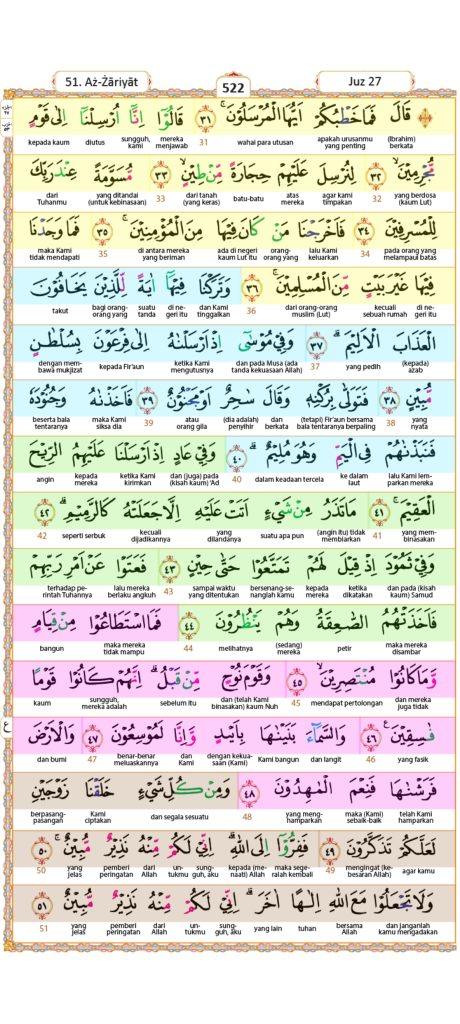 51. Aż-Żāriyāt
522
Juz 27
۞ قَالَ فَمَا خَطْبُكُمْ اَيُّهَا الْمُرْسَلُوْنَ ٣١ قَالُوْٓا اِنَّآ اُرْسِلْنَآ اِلٰى قَوْمٍ
(Ibrahim) berkata apakah urusanmu yang penting wahai para utusan 31 mereka menjawab sungguh, kami diutus kepada kaum
مُّجْرِمِيْنَۙ ٣٢ لِنُرْسِلَ عَلَيْهِمْ حِجَارَةً مِّنْ طِيْنٍۙ ٣٣ مُّسَوَّمَةً عِنْدَ رَبِّكَ
yang berdosa (kaum Lut) 32 agar kami timpakan atas mereka batu-batu dari tanah (yang keras) 33 yang ditandai (untuk kebinasaan) dari Tuhanmu
لِلْمُسْرِفِيْنَ ٣٤ فَاَخْرَجْنَا مَنْ كَانَ فِيْهَا مِنَ الْمُؤْمِنِيْنَۚ ٣٥ فَمَا وَجَدْنَا
pada orang yang melampaui batas 34 lalu Kami keluarkan orang-orang yang ada di negeri kaum Lut itu di antara mereka yang beriman 35 maka Kami tidak mendapati
فِيْهَا غَيْرَ بَيْتٍ مِّنَ الْمُسْلِمِيْنَۚ ٣٦ وَتَرَكْنَا فِيْهَآ اٰيَةً لِّلَّذِيْنَ يَخَافُوْنَ
di negeri itu kecuali sebuah rumah dari orang-orang muslim (Lut) 36 dan Kami tinggalkan di negeri itu suatu tanda bagi orang-orang yang takut
الْعَذَابَ الْاَلِيْمَۗ ٣٧ وَفِيْ مُوْسٰٓى اِذْ اَرْسَلْنٰهُ اِلٰى فِرْعَوْنَ بِسُلْطٰنٍ
(kepada) azab yang pedih 37 dan pada Musa (ada tanda kekuasaan Allah) ketika Kami mengutusnya kepada Fir'aun dengan membawa mukjizat
مُّبِيْنٍ ٣٨ فَتَوَلّٰى بِرُكْنِهٖ وَقَالَ سٰحِرٌ اَوْ مَجْنُوْنٌ ٣٩ فَاَخَذْنٰهُ وَجُنُوْدَهٗ
yang nyata 38 (tetapi) Fir'aun bersama bala tentaranya berpaling dan berkata (dia adalah) penyihir atau orang gila 39 maka Kami siksa dia beserta bala tentaranya
فَنَبَذْنٰهُمْ فِى الْيَمِّ وَهُوَ مُلِيْمٌۗ ٤٠ وَفِيْ عَادٍ اِذْ اَرْسَلْنَا عَلَيْهِمُ الرِّيْحَ
lalu Kami lemparkan mereka ke dalam laut dalam keadaan tercela 40 dan (juga) pada (kisah kaum) 'Ad ketika Kami kirimkan kepada mereka angin
الْعَقِيْمَۚ ٤١ مَا تَذَرُ مِنْ شَيْءٍ اَتَتْ عَلَيْهِ اِلَّا جَعَلَتْهُ كَالرَّمِيْمِۗ ٤٢
yang membinasakan 41 (angin itu) tidak membiarkan suatu apa pun yang dilandanya kecuali dijadikannya seperti serbuk 42
وَفِيْ ثَمُوْدَ اِذْ قِيْلَ لَهُمْ تَمَتَّعُوْا حَتّٰى حِيْنٍ ٤٣ فَعَتَوْا عَنْ اَمْرِ رَبِّهِمْ
dan pada (kisah kaum) Samud ketika dikatakan kepada mereka bersenang-senanglah kamu sampai waktu yang ditentukan 43 lalu mereka berlaku angkuh terhadap perintah Tuhannya
فَاَخَذَتْهُمُ الصّٰعِقَةُ وَهُمْ يَنْظُرُوْنَ ٤٤ فَمَا اسْتَطَاعُوْا مِنْ قِيَامٍ
maka mereka disambar petir (sedang) mereka melihatnya 44 maka mereka tidak mampu bangun
وَّمَا كَانُوْا مُنْتَصِرِيْنَۙ ٤٥ وَقَوْمَ نُوْحٍ مِّنْ قَبْلُۗ اِنَّهُمْ كَانُوْا قَوْمًا
dan mereka juga tidak mendapat pertolongan 45 dan (telah Kami binasakan) kaum Nuh sebelum itu sungguh, mereka adalah kaum
فٰسِقِيْنَ ٤٦ وَالسَّمَاۤءَ بَنَيْنٰهَا بِاَيْىدٍ وَّاِنَّا لَمُوْسِعُوْنَ ٤٧ وَالْاَرْضَ
yang fasik 46 dan langit Kami bangun dengan kekuasaan (Kami) dan Kami benar-benar meluaskannya 47 dan bumi
فَرَشْنٰهَا فَنِعْمَ الْمٰهِدُوْنَ ٤٨ وَمِنْ كُلِّ شَيْءٍ خَلَقْنَا زَوْجَيْنِ
telah Kami hamparkan maka (Kami) sebaik-baik yang menghamparkan 48 dan segala sesuatu Kami ciptakan berpasang-pasangan
لَعَلَّكُمْ تَذَكَّرُوْنَ ٤٩ فَفِرُّوْٓا اِلَى اللّٰهِۗ اِنِّيْ لَكُمْ مِّنْهُ نَذِيْرٌ مُّبِيْنٌۚ ٥٠
agar kamu mengingat (kebesaran Allah) 49 maka segeralah kembali kepada (menaati) Allah sungguh, aku untukmu dari Allah pemberi peringatan yang jelas 50
وَلَا تَجْعَلُوْا مَعَ اللّٰهِ اِلٰهًا اٰخَرَۗ اِنِّيْ لَكُمْ مِّنْهُ نَذِيْرٌ مُّبِيْنٌ ٥١
dan janganlah kamu mengadakan bersama Allah tuhan yang lain sungguh, aku untukmu dari Allah pemberi peringatan yang jelas 51
ع